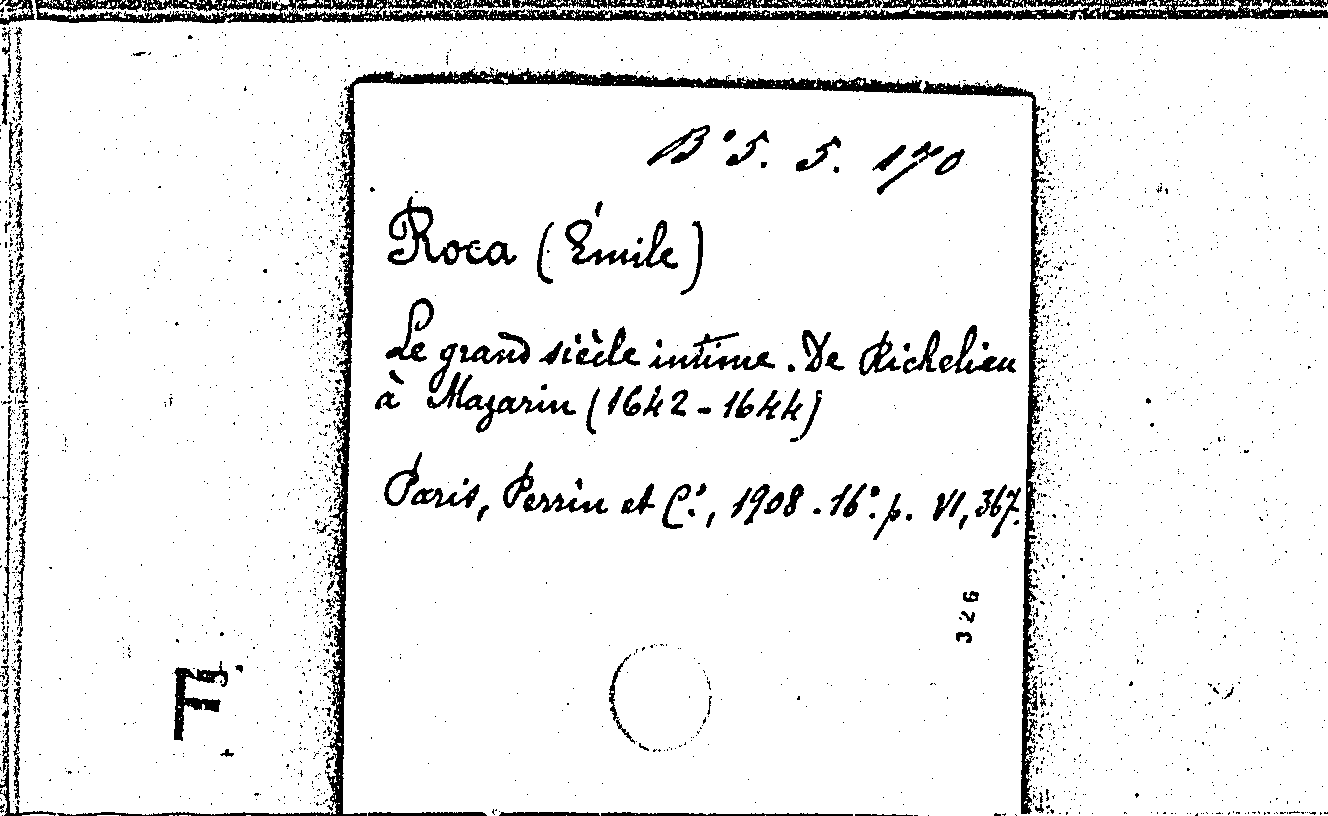 B° 5. 5. 170
Roca (Émile)
Le grand siècle intime. De Richelieu
à Mazarin (1642-1644)
Paris, Perrin et C.ie, 1908. 16°. p. VI, 367.
326